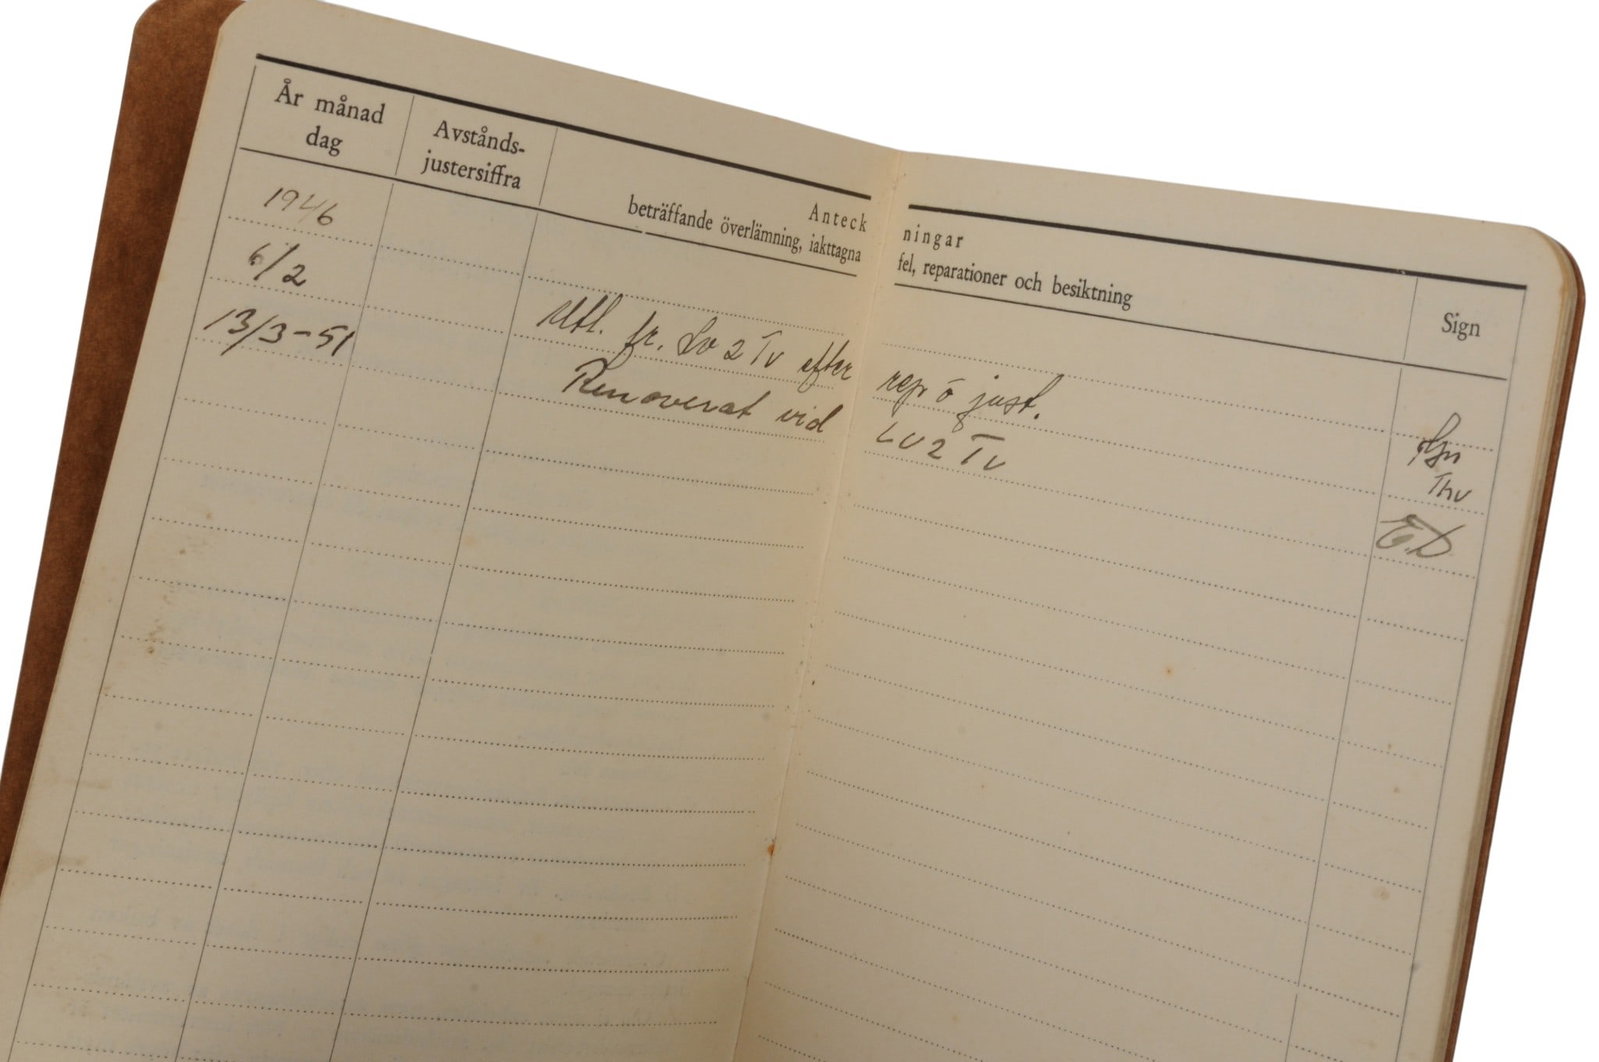 År månad
dag
Avstånds-
justersiffra
Anteckningar
beträffande överlämning, iakttagna fel, reparationer och besiktning
Sign
1946
6/2 Utl. fr. Lv 2 Tv efter rep o just.
13/3-51 Renoverat vid LV2 TV
E.D